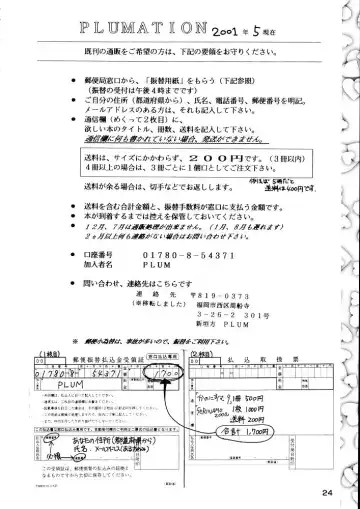 PLUMATION 2001年5現在
既刊の通販をご希望の方は、下記の要領をお守りください。
● 郵便局窓口から、「振替用紙」をもらう（下記参照）
（振替の受付は午後4時までです）
● ご自分の住所（都道府県から）、氏名、電話番号、郵便番号を明記。
メールアドレスのある方は、それも記入して下さい。
● 通信欄（めくって2枚目）に、
欲しい本のタイトル、冊数、送料を記入して下さい。
通信欄に何も書かれていない場合、発送ができません。
送料は、サイズにかかわらず、200円です。（3冊以内）
4冊以上の場合は、3冊ごとに1個口としてご注文下さい。
送料が余る場合は、切手などでお返しします。
送料は400円です。
● 送料を含む合計金額と、振替手数料が窓口に支払う金額です。
● 本が到着するまでは控えを保管しておいてください。
● 12月、7月は通販処理が出来ません。（1月、8月も遅れます）
2ヵ月以上何も連絡がない場合はお問い合わせ下さい。
● 口座番号 01780-8-54371
加入者名 PLUM
● 問い合わせ、連絡先はこちら
連絡先 〒819-0373
（※移転しました） 福岡市西区周船寺
3-26-2 301号
新垣方 PLUM
※ 郵便小為替は、事故が多いので、振替をご利用下さい。
（1枚目）
（2枚目）
郵便振替払込金受領証
窓口払込専用
払込取扱票
01780 8 54371
1700
PLUM
1冊 500円
1冊 1000円
送料 200円
合計 1,700円
あなたの住所（都道府県から）
氏名
24